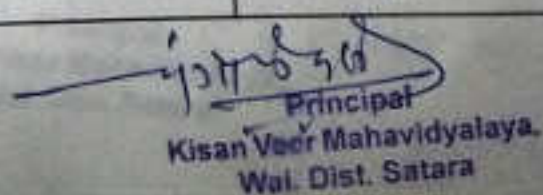 Principal
Kisan Veer Mahavidyalaya,
Wai. Dist. Satara